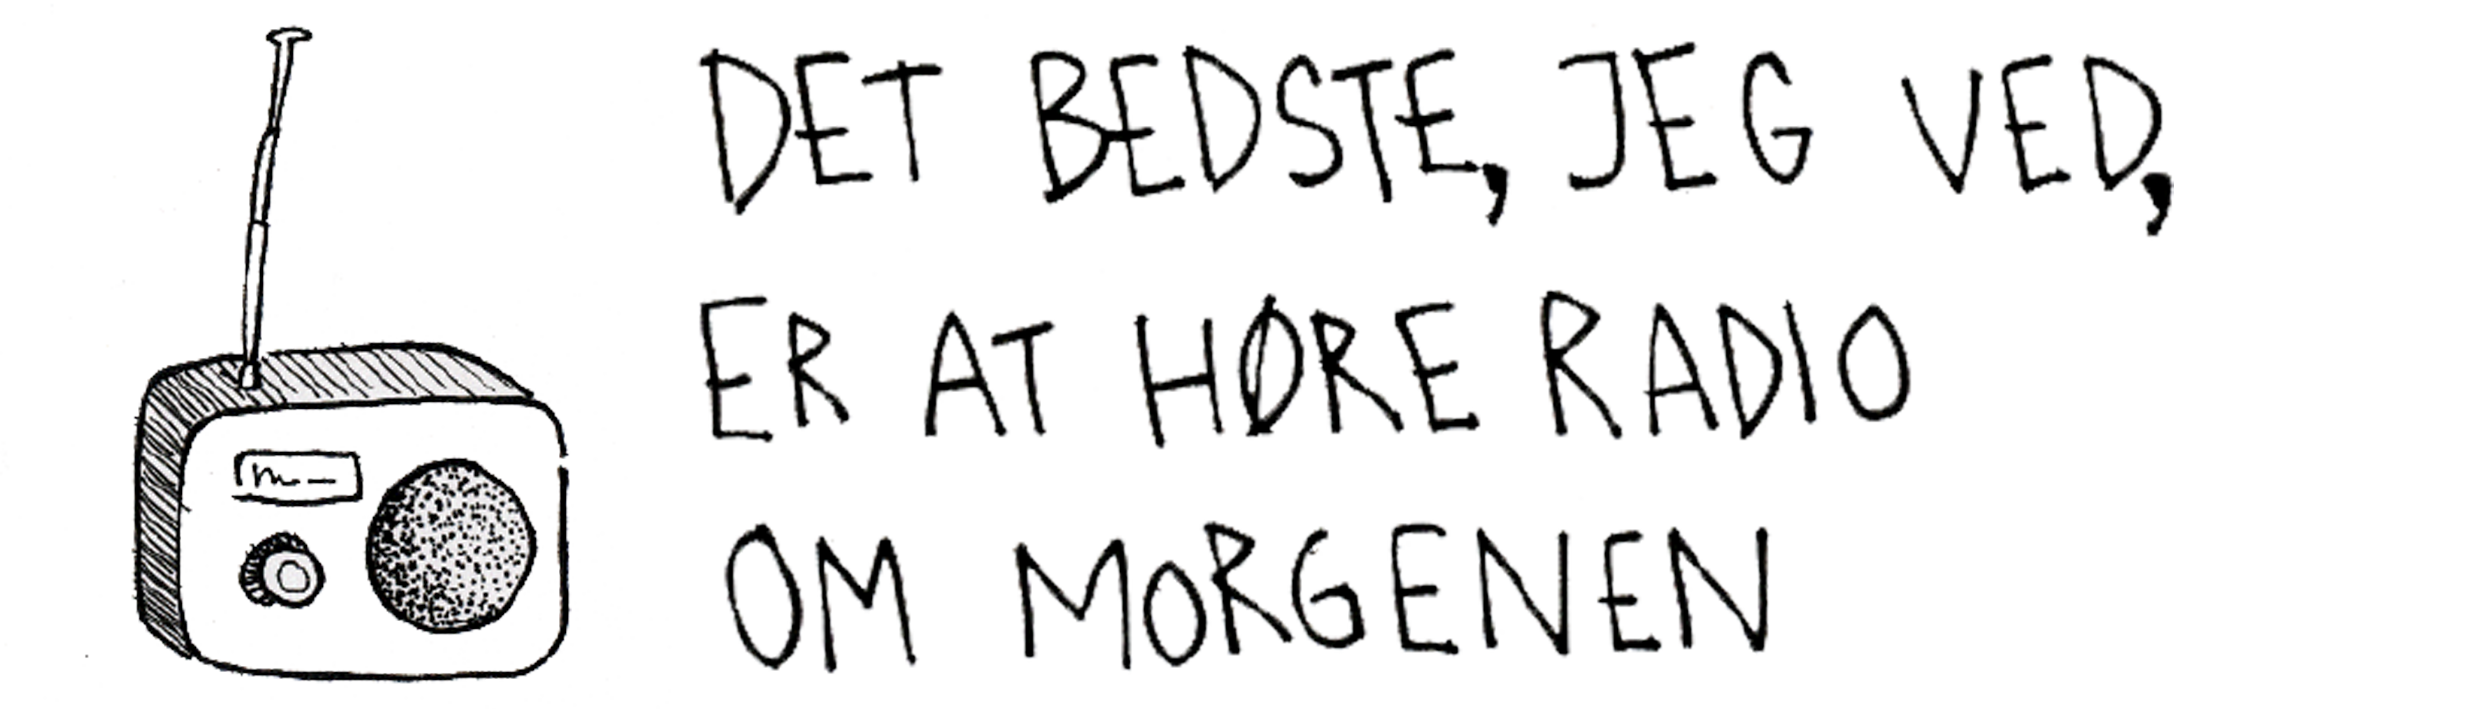 DET BEDSTE, JEG VED,
ER AT HØRE RADIO
OM MORGENEN